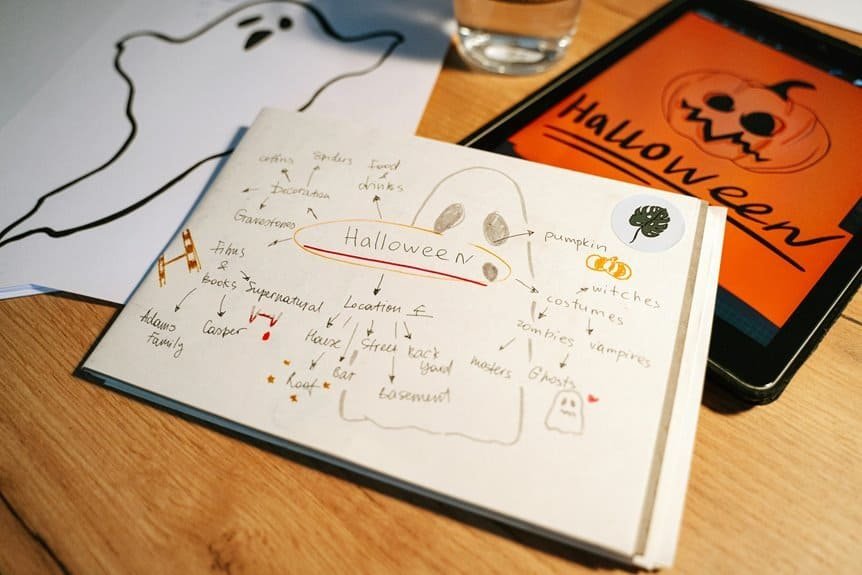 Halloween
coffins spiders Food
&
drinks
Decoration
Gravestones
Halloween
pumpkin
Films
&
Books
Supernatural
Adams
Family
Casper
Location
House
Street
Back
yard
Roof
Bar
Basement
costumes
witches
zombies
vampires
Ghosts